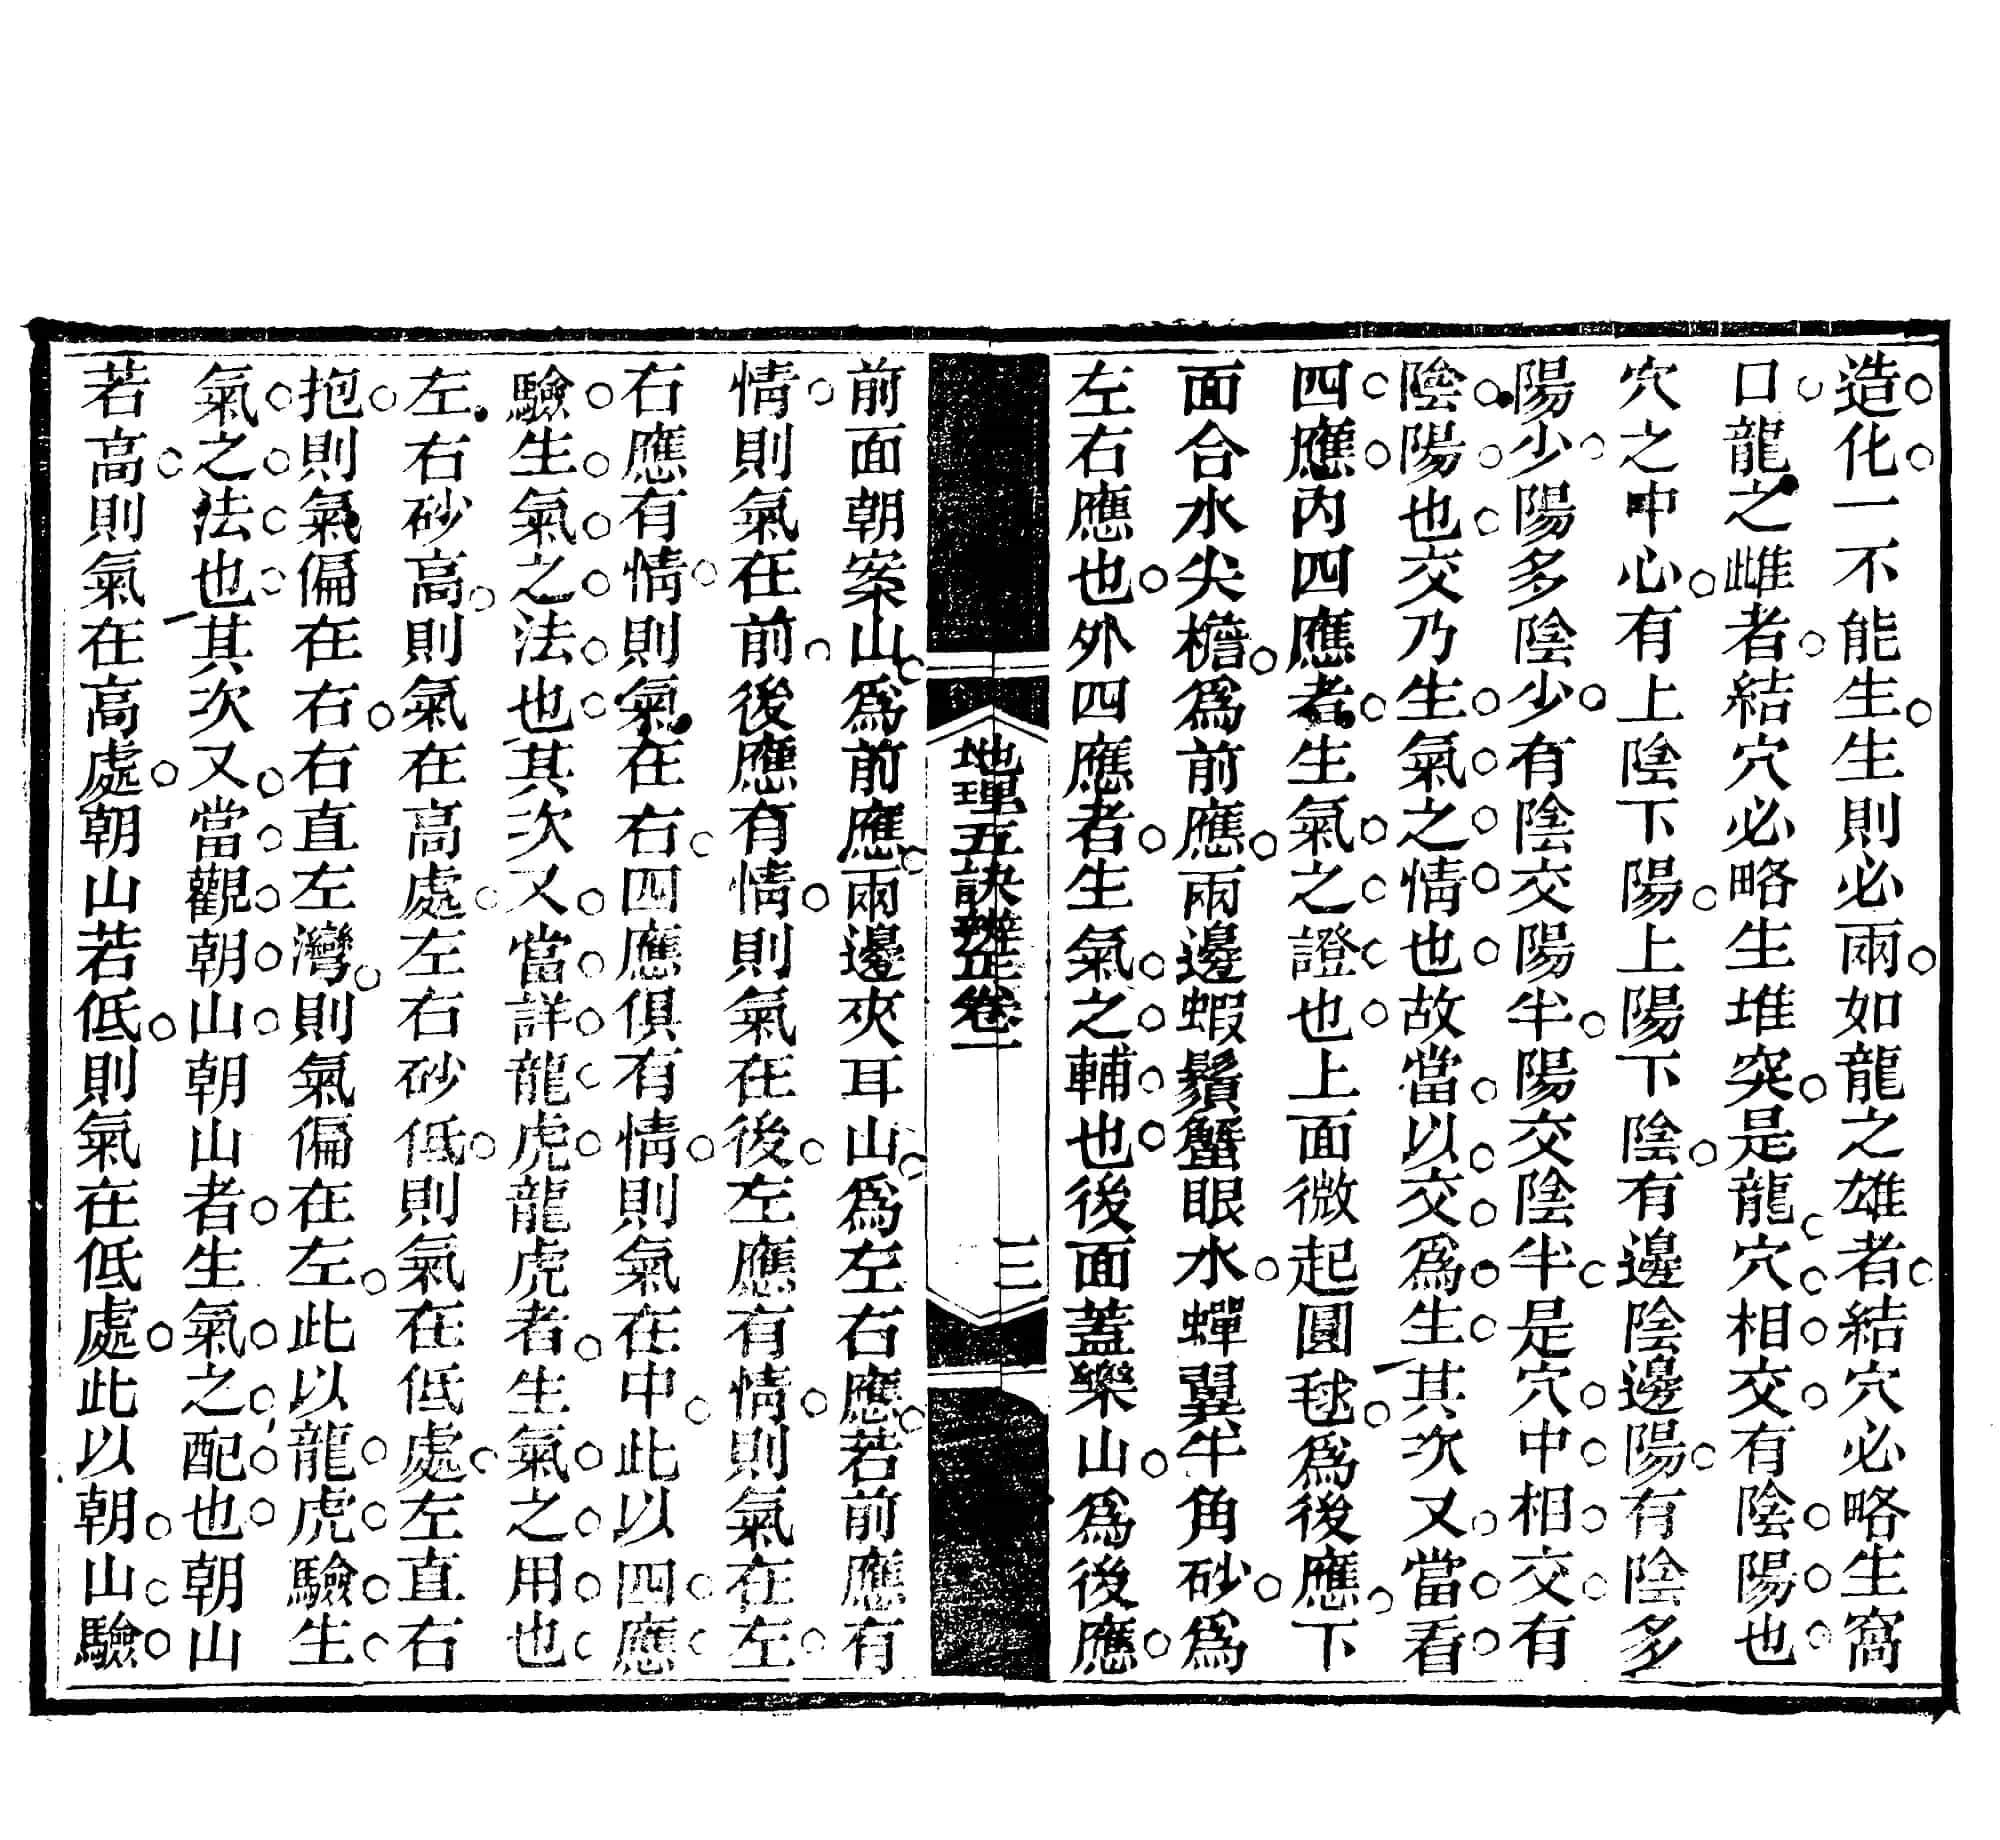 造化一不能生生則必兩如龍之雄者結穴必略生窩
口龍之雌者結穴必略生堆突是龍穴相交有陰陽也
穴之中心有上陰下陽上陽下陰有邊陰邊陽有陰多
陽少陽多陰少有陰交陽半陽交陰半是穴中相交有
陰陽也交乃生氣之情也故當以交爲生其次又當看
四應內四應者生氣之證也上面微起圓毬爲後應下
面合水尖檐爲前應兩邊蝦鬚蟹眼水蟬翼牛角砂爲
左右應也外四應者生氣之輔也後面蓋樂山爲後應
地理五訣辨正卷一
三
前面朝案山爲前應兩邊夾耳山爲左右應若前應有
情則氣在前後應有情則氣在後左應有情則氣在左
右應有情則氣在右四應俱有情則氣在中此以四應
驗生氣之法也其次又當詳龍虎龍虎者生氣之用也
左右砂高則氣在高處左右砂低則氣在低處左直右
抱則氣偏在右右直左灣則氣偏在左此以龍虎驗生
氣之法也其次又當觀朝山朝山者生氣之配也朝山
若高則氣在高處朝山若低則氣在低處此以朝山驗